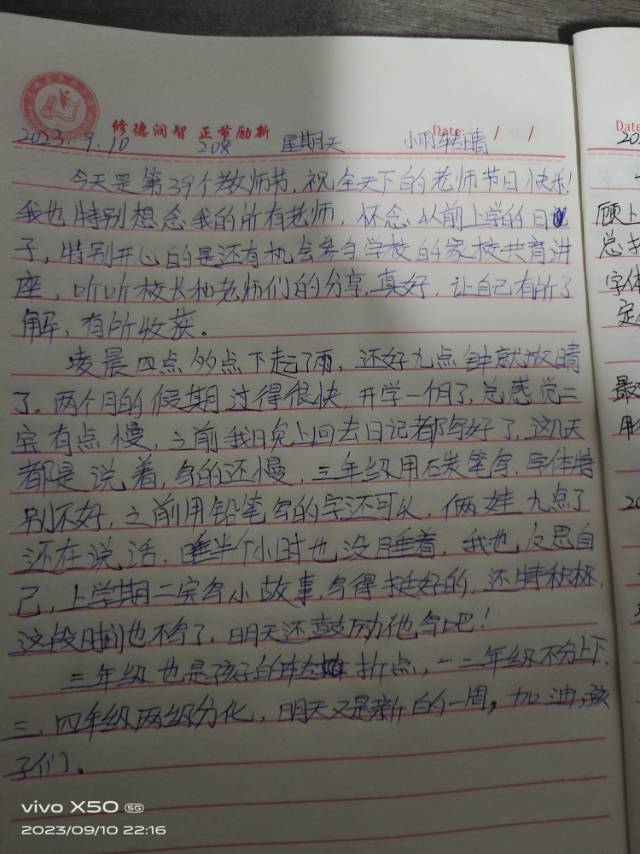 修德润智 正节励新
Date: / /
2023.9.10 208 星期天 小雨转晴
今天是第39个教师节,祝全天下的老师节日快乐!
我也特别想念我的所有老师,怀念从前上学的日
子,特别开心的是还有机会参与学校的家校共育讲
座,听听校长和老师们的分享,真好,让自己有所了
解,有所收获。
凌晨四点多点下起了雨,还好九点钟就放晴
了。两个月的假期过得很快,开学一个月了,总感觉二
宝有点慢,之前我晚上回去日记都写好了,这几天
都是说着,写的还慢,三年级用碳笔写,字体特
别不好,之前用铅笔写的字还可以,俩娃九点了
还在说话,睡半个小时也没睡着,我也反思自
己,上学期二宝写小故事,写得挺好的,还特积极,
这段时间也不写了,明天还鼓励他写吧!
三年级也是孩子的转折点,一二年级不分上下,
三、四年级两级分化,明天又是新的一周,加油,孩
子们。
Date
20
顾上
总书
字体
定
最
用
20
vivo X50 5G
2023/09/10 22:16